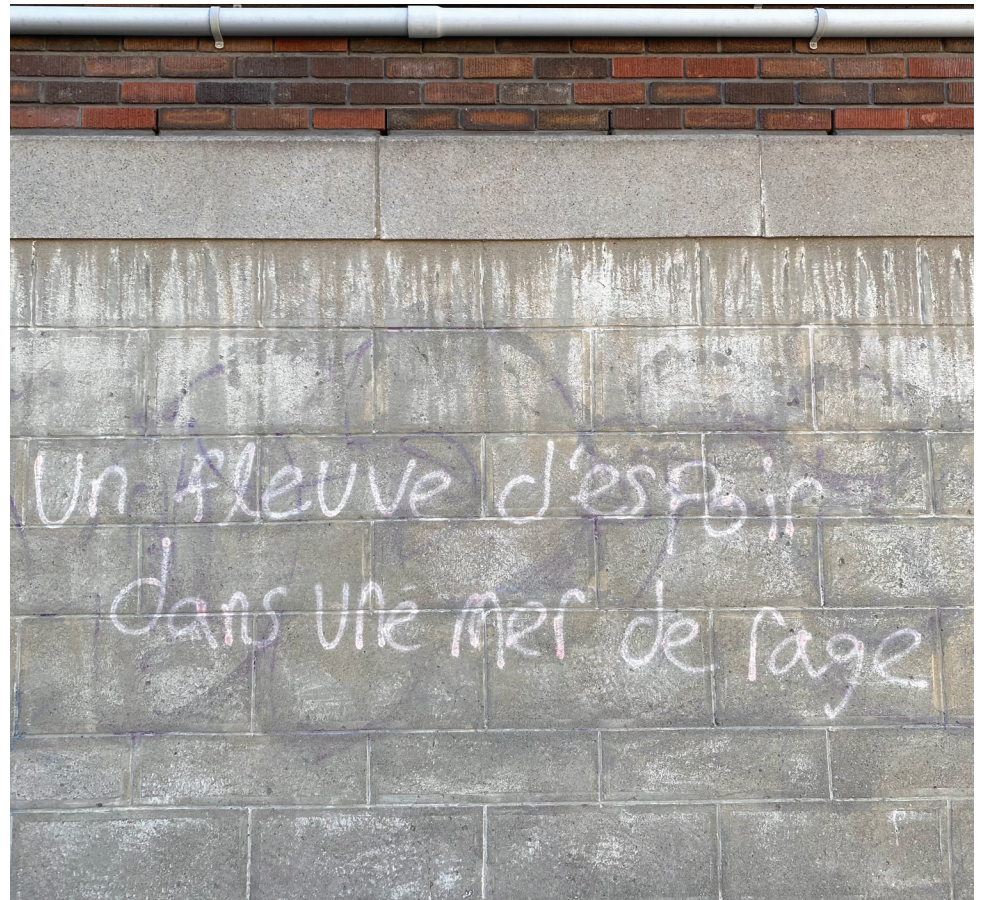 Un fleuve d'espoir
dans une mer de rage